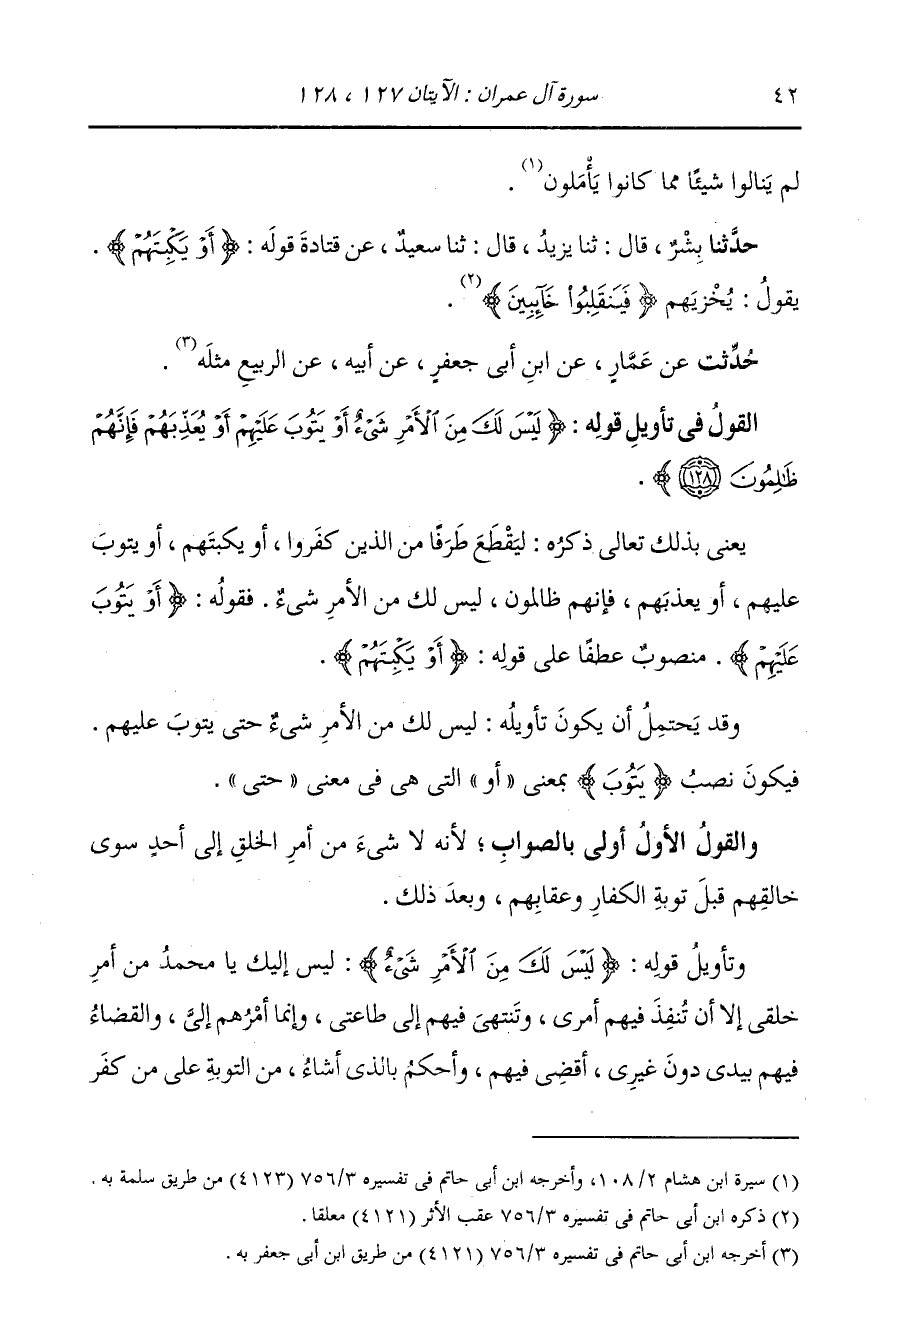 ٤٢ سورة آل عمران : الآيتان ١٢٧ ، ١٢٨
لم يَنالوا شيئًا مما كانوا يَأْمَلون(١) .
حدَّثنا بِشْرٌ ، قال : ثنا يزيدُ ، قال : ثنا سعيدٌ ، عن قتادةَ قولَه : ﴿ أَوْ يَكْبِتَهُمْ ﴾ .
يقولُ : يُخْزِيَهم ﴿ فَيَنقَلِبُوا۟ خَآئِبِينَ ﴾(٢) .
حُدِّثت عن عَمَّارٍ ، عن ابنِ أبى جعفرٍ ، عن أبيه ، عن الربيعِ مثلَه(٣) .
القولُ فى تأويلِ قولِه : ﴿ لَيْسَ لَكَ مِنَ ٱلْأَمْرِ شَىْءٌ أَوْ يَتُوبَ عَلَيْهِمْ أَوْ يُعَذِّبَهُمْ فَإِنَّهُمْ
ظَٰلِمُونَ ١٢٨ ﴾ .
يعنى بذلك تعالى ذكرُه : ليَقْطَعَ طَرَفًا من الذين كفَروا ، أو يكبتَهم ، أو يتوبَ
عليهم ، أو يعذبَهم ، فإنهم ظالمون ، ليس لك من الأمرِ شىءٌ . فقولُه : ﴿ أَوْ يَتُوبَ
عَلَيْهِمْ ﴾ . منصوبٌ عطفًا على قولِه : ﴿ أَوْ يَكْبِتَهُمْ ﴾ .
وقد يَحتمِلُ أن يكونَ تأويلُه : ليس لك من الأمرِ شىءٌ حتى يتوبَ عليهم .
فيكونَ نصبُ ﴿ يَتُوبَ ﴾ بمعنى « أو » التى هى فى معنى « حتى » .
والقولُ الأولُ أولى بالصوابِ ؛ لأنه لا شىءَ من أمرِ الخلقِ إلى أحدٍ سوى
خالقِهم قبلَ توبةِ الكفارِ وعقابِهم ، وبعدَ ذلك .
وتأويلُ قولِه : ﴿ لَيْسَ لَكَ مِنَ ٱلْأَمْرِ شَىْءٌ ﴾ : ليس إليك يا محمدُ من أمرِ
خلقى إلا أن تُنفِذَ فيهم أمرى ، وتَنتهىَ فيهم إلى طاعتى ، وإنما أمْرُهم إلىَّ ، والقضاءُ
فيهم بيدى دونَ غيرِى ، أقضِى فيهم ، وأحكمُ بالذى أشاءُ ، من التوبةِ على من كفَر
(١) سيرة ابن هشام ١٠٨/٢، وأخرجه ابن أبى حاتم فى تفسيره ٧٥٦/٣ (٤١٢٣) من طريق سلمة به .
(٢) ذكره ابن أبى حاتم فى تفسيره ٧٥٦/٣ عقب الأثر (٤١٢١) معلقا .
(٣) أخرجه ابن أبى حاتم فى تفسيره ٧٥٦/٣ (٤١٢١) من طريق ابن أبى جعفر به .